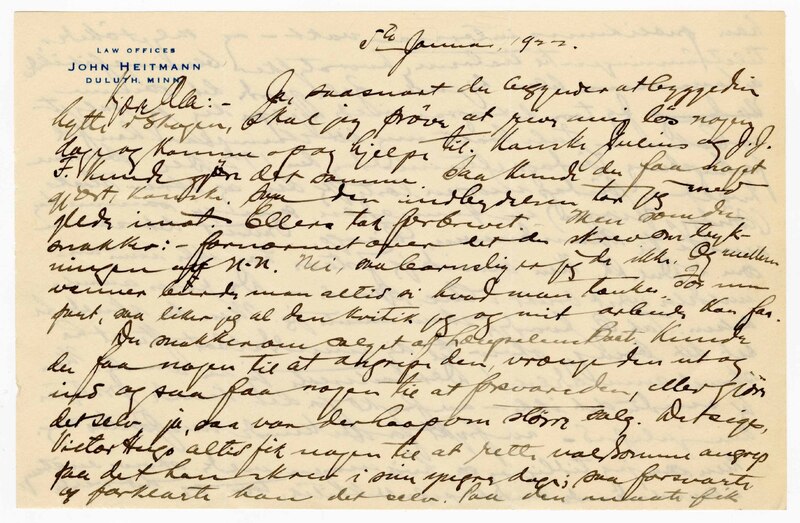 LAW OFFICES
JOHN HEITMANN
DULUTH, MINN.
5te Januar, 1922.
Ja, saasnart du begynder at bygge din
hytte i Skogen, skal jeg prøve at rive mig løs nogen
dage og komme op og hjelpe til. Kanske Julius og J. J.
F. kunde gjøre det samme. Saa kunde du faa noget
gjort, kanske. Saa den indbydelsen tar jeg med
glede imot. Ellers tak for brevet. Men som du
snakke: - fornærmet over det du skrev om
av N. N. Nei, saa barnslig er jeg da ikke. Og mellem
venner burde man altid si hvad man tenker. For min
part, saa liker jeg al den kritik jeg og mit arbeide kan faa.
Du snakker om salget af Kunde
du faa nogen til at angripe den, vrænge den ut og
ind og saa faa nogen til at forsvare den, eller gjøre
det selv, ja, saa var der haap om større salg. Det siges,
Victor Hugo altid fik nogen til at rette voldsomme angrep
paa det han skrev i sine yngre dage; saa forsvarte
og forklarte han det selv. Paa den maate fik